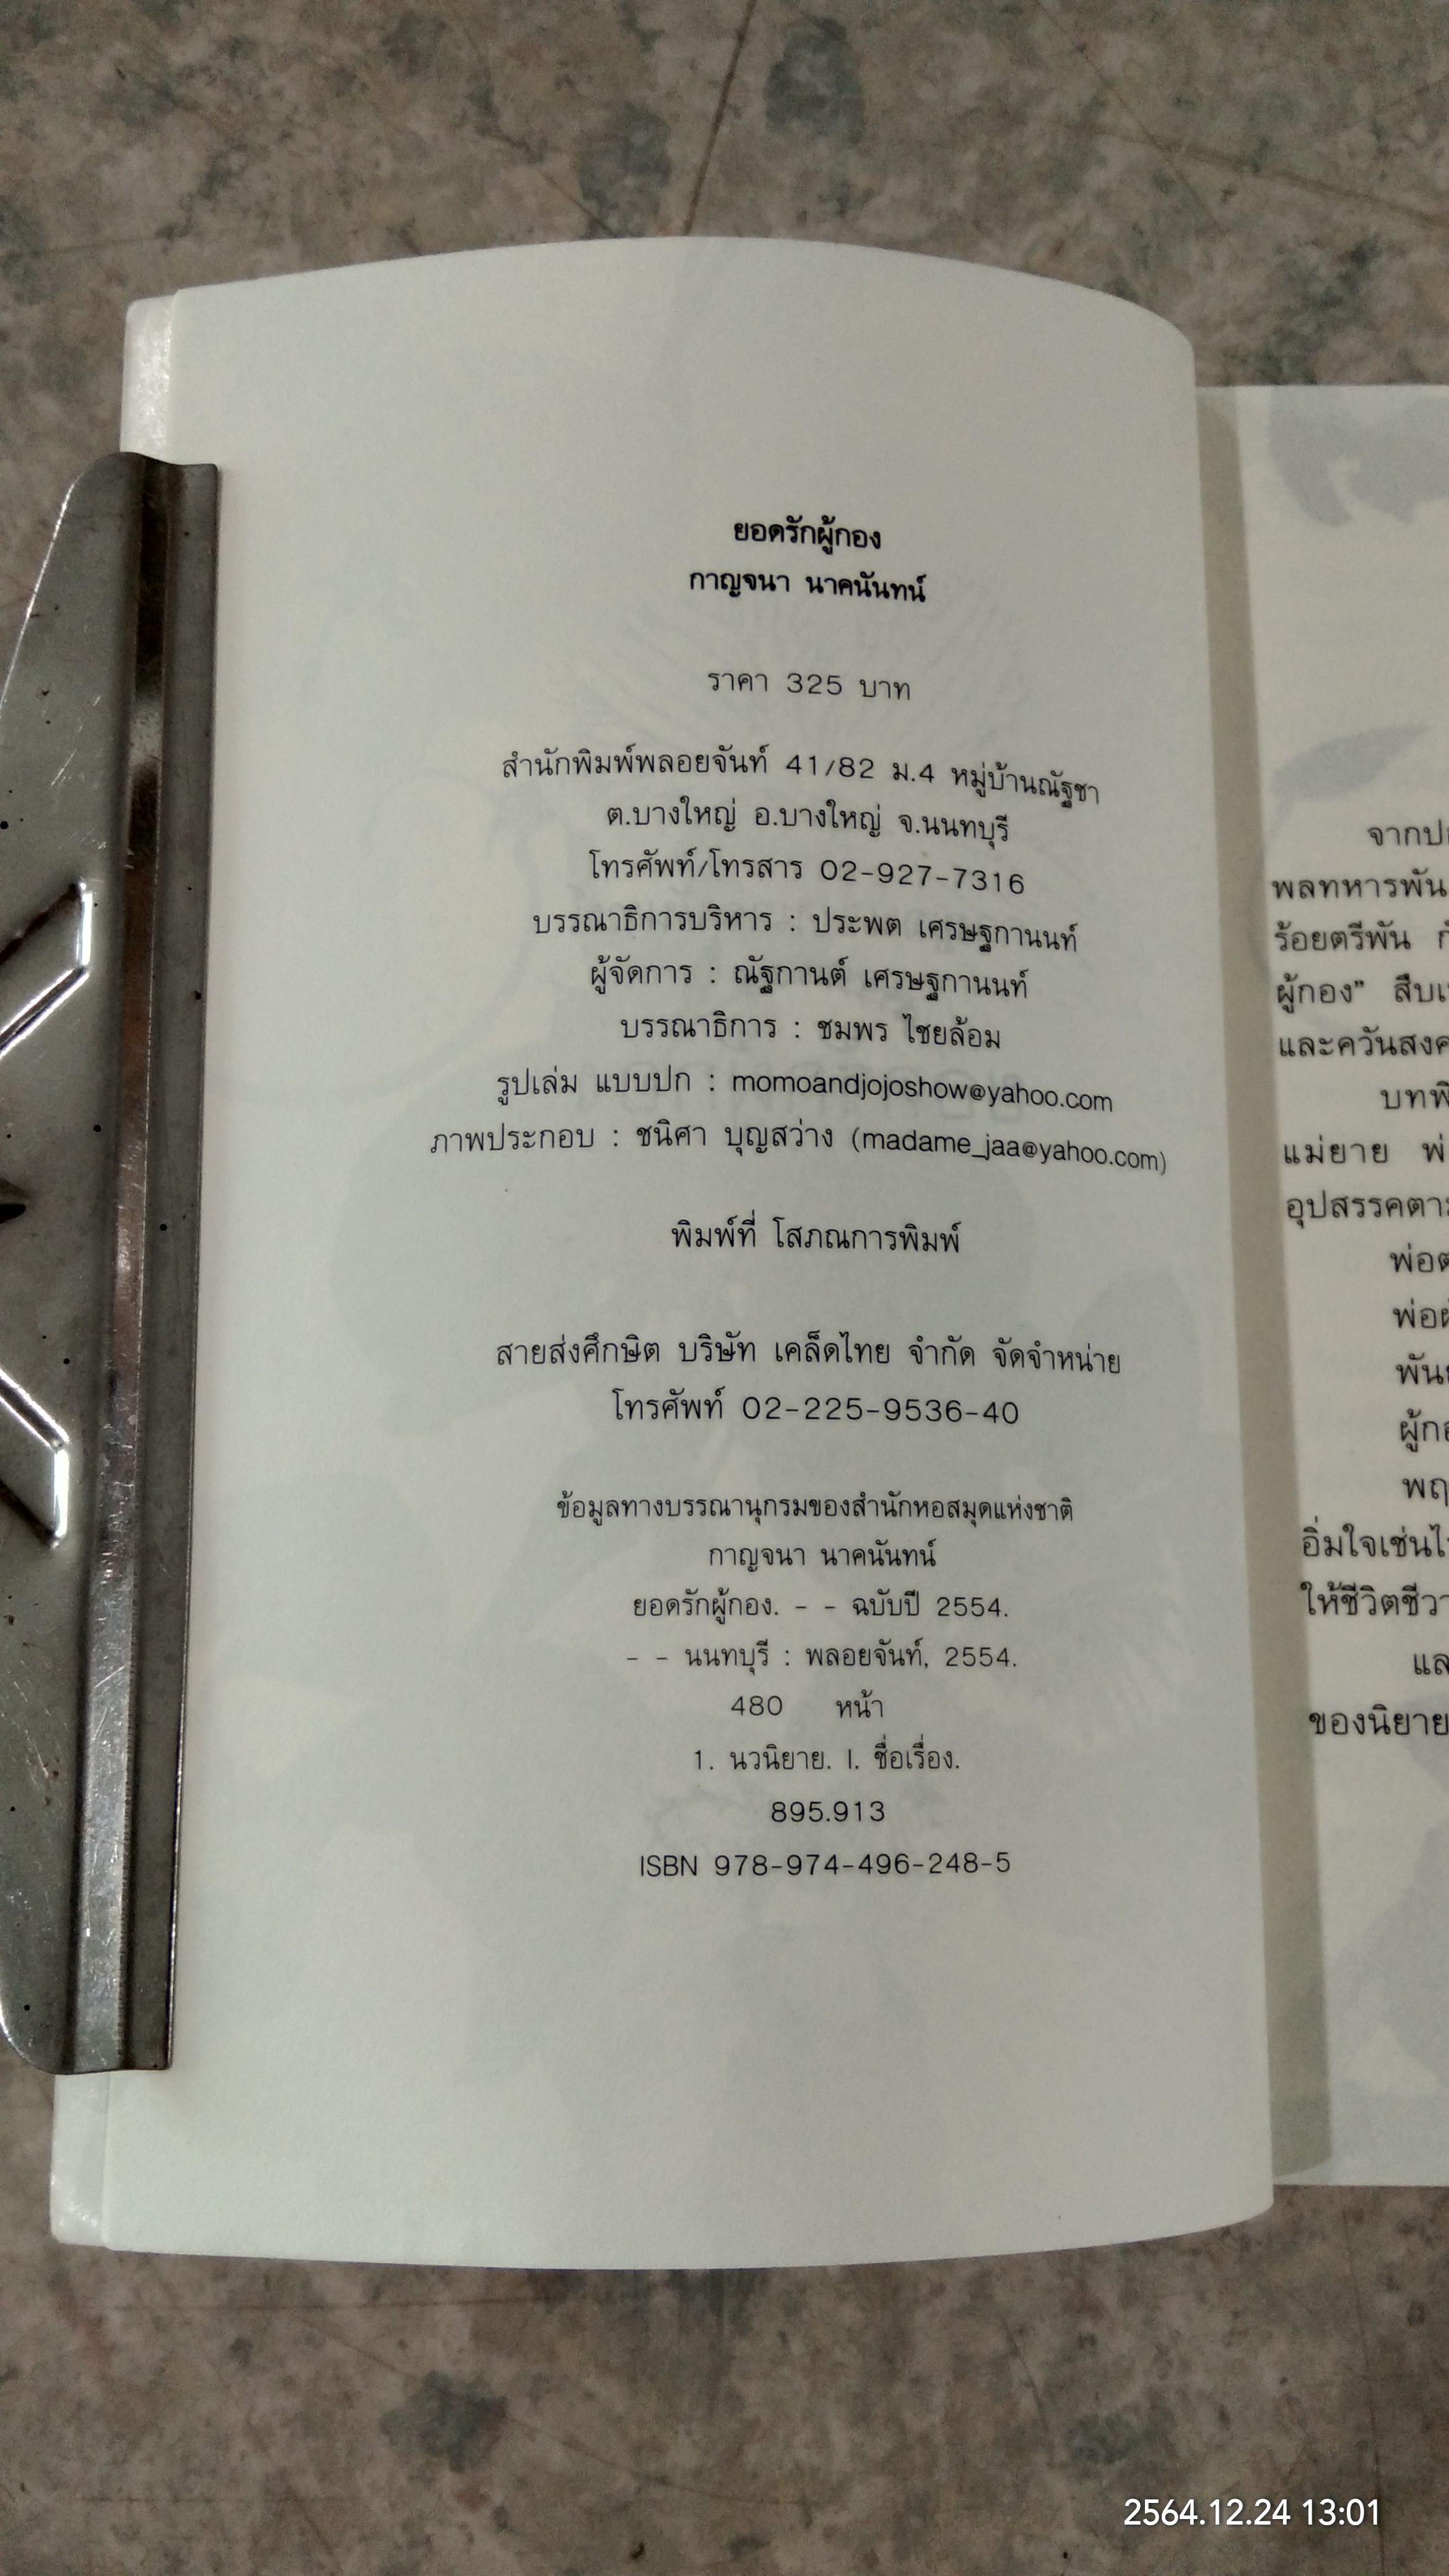 ยอดรักผู้กอง
กาญจนา นาคนันทน์
ราคา 325 บาท
สำนักพิมพ์พลอยจันท์ 41/82 ม.4 หมู่บ้านณัฐชา
ต.บางใหญ่ อ.บางใหญ่ จ.นนทบุรี
โทรศัพท์/โทรสาร 02-927-7316
บรรณาธิการบริหาร : ประพต เศรษฐกานนท์
ผู้จัดการ : ณัฐกานต์ เศรษฐกานนท์
บรรณาธิการ : ชมพร ไชยล้อม
รูปเล่ม แบบปก : momoandjojoshow@yahoo.com
ภาพประกอบ : ชนิศา บุญสว่าง (madame_jaa@yahoo.com)
พิมพ์ที่ โสภณการพิมพ์
สายส่งศึกษิต บริษัท เคล็ดไทย จำกัด จัดจำหน่าย
โทรศัพท์ 02-225-9536-40
ข้อมูลทางบรรณานุกรมของสำนักหอสมุดแห่งชาติ
กาญจนา นาคนันทน์
ยอดรักผู้กอง. - - ฉบับปี 2554.
- - นนทบุรี : พลอยจันท์, 2554.
480 หน้า
1. นวนิยาย. I. ชื่อเรื่อง.
895.913
ISBN 978-974-496-248-5
พลทหารพัน
ร้อยตรีพัน
ผู้กอง"
แม่ยาย
ของนิยาย
2564.12.24 13:01